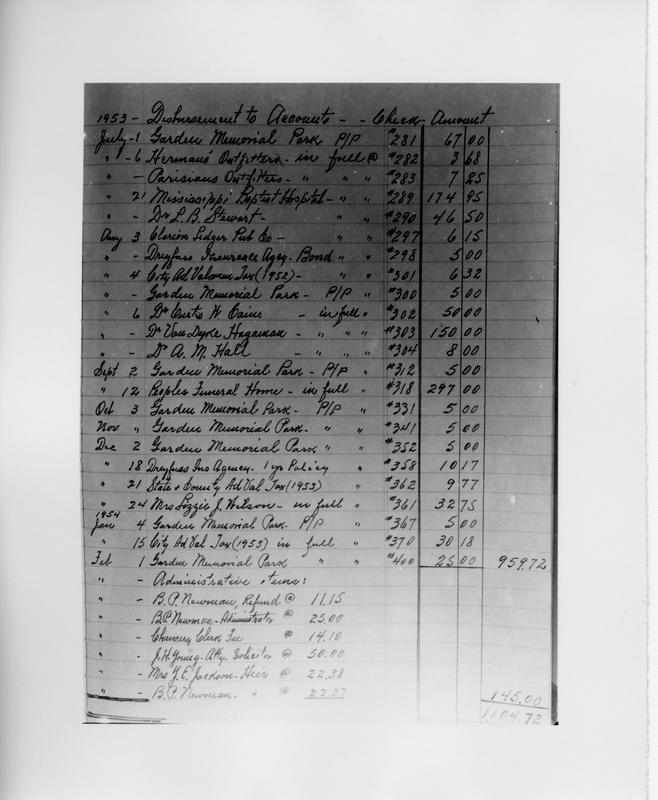 1953 - Disbursement to Accounts - - Check - Amount
July - 1 Garden Memorial Park P/P #281 67 00
" - 6 Hermans' Outfitters - in full @ #282 3 68
" - Parisians Outfitters - " " " #283 7 25
" 21 Mississippi Baptist Hospital - " " #289 174 95
" - Dr L. B. Stewart - " " #290 46 50
Aug 3 Clarion Ledger Pub Co - " " #297 6 15
" - Dreyfuss Insurance Agcy - Bond " " #298 5 00
" 4 City Ad Valorem Tax (1952) - " " #301 6 32
" - Garden Memorial Park - P/P " #300 5 00
" 6 Dr Curtis W Caine - in full " #302 50 00
" - Dr Van Dyke Hagaman - " " " #303 150 00
" - Dr A. M. Hall - " " " #304 8 00
Sept 2 Garden Memorial Park - P/P " #312 5 00
" 12 Peoples Funeral Home - in full " #318 297 00
Oct 3 Garden Memorial Park - P/P " #331 5 00
Nov " Garden Memorial Park - " " #341 5 00
Dec 2 Garden Memorial Park " " #352 5 00
" 18 Dreyfuss Ins Agency - 1 yr Policy " #358 10 17
" 21 State & County Ad Val Tax (1953) " #362 9 77
" 24 Mrs Lizzie J. Wilson - in full " #361 32 75
1954
Jan 4 Garden Memorial Park - P/P " #367 5 00
" 15 City Ad Val - Tax (1953) in full " #370 30 18
Feb 1 Garden Memorial Park " " #400 25 00 959.72
" - Administrative items:
" - B.P. Newman, Refund @ 11.15
" - B.P. Newman - Administrator @ 25.00
" - Chancery Clerk Fee @ 14.10
" - J.H. Young - Atty. Solicitor @ 50.00
" - Mrs Y.E. Jackson - Heir @ 22.38
" - B.P. Newman - " @ 22.37 145.00
1104.72